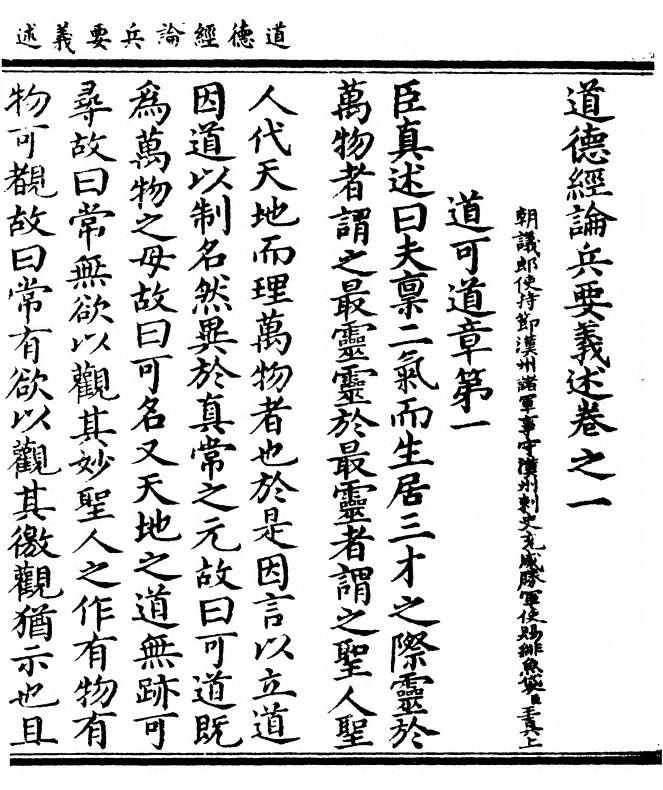 道德經論兵要義述
道德經論兵要義述卷之一
朝議郎使持節漢州諸軍事守漢州刺史充威勝軍使賜緋魚袋臣王真上
道可道章第一
臣真述曰夫禀二氣而生居三才之際靈於
萬物者謂之最靈靈於最靈者謂之聖人聖
人代天地而理萬物者也於是因言以立道
因道以制名然異於真常之元故曰可道既
為萬物之母故曰可名又天地之道無跡可
尋故曰常無欲以觀其妙聖人之作有物有
物可覩故曰常有欲以觀其徼觀猶示也且